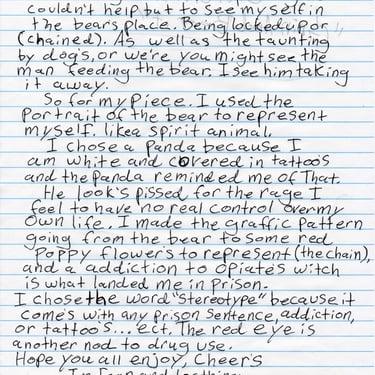 couldn't help but to see myself in
the bears place. Being locked up or
(chained). As well as the taunting
by dog's, or we're you might see the
man feeding the bear. I see him taking
it away.
So for my piece. I used the
Portrait of the bear to represent
myself. like a spirit animal.
I chose a Panda because I
am white and covered in tattoo's
and the panda reminded me of That.
He look's pissed for the rage I
feel to have no real control over my
own life. I made the graffic pattern
going from the bear to some red
Poppy flower's to represent (the chain),
and a addiction to opiates witch
is what landed me in prison.
I chose the word "stereotype" because it
comes with any prison sentence, addiction,
or tattoo's... ect. The red eye is
another nod to drug use.
Hope you all enjoy, Cheer's